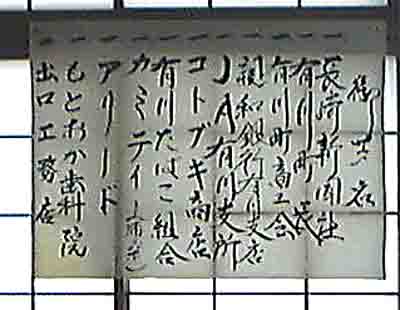 長崎新聞社
有川町長
有川町商工会
親和銀行有川支店
JA有川支所
コトブキ商店
有川たばこ組合
カミティ
アリード
もとおか歯科院
出口工務店